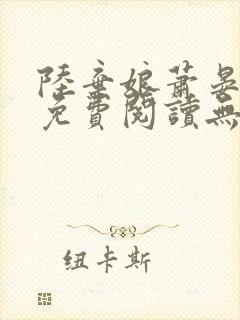 陸棄娘蕭晏
免費閱讀無
纽卡斯